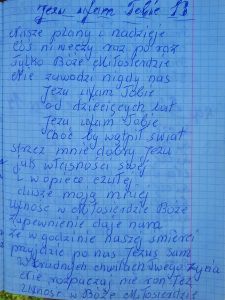 Jezu ufam Tobie
Nasze plany i nadzieje
coś niweczy raz po raz
tylko Boże Miłosierdzie
Nie zawodzi nigdy nas
Jezu ufam Tobie
od dziecięcych lat
Jezu ufam Tobie
choć by wątpił świat
strzeż mnie dobry Jezu
jak własności swej
i w opiece czułej
duszę moją miej
Ufność w Miłosierdzie Boże
zapewnienie daje nam
że w godzinie naszej śmierci
przyjdzie po nas Jezus sam
W trudnych chwilach swego życia
nie rozpaczaj nie roń łez
Ufność w Boże Miłosierdzie